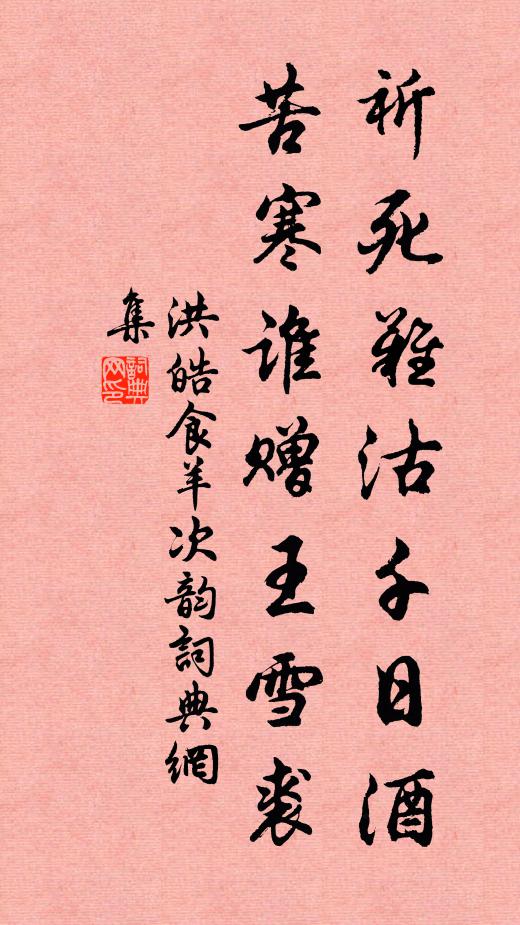 祈死難沽千日酒
苦寒誰贈王雪裘
洪皓食羊次韵詞典網
集
詞典网印